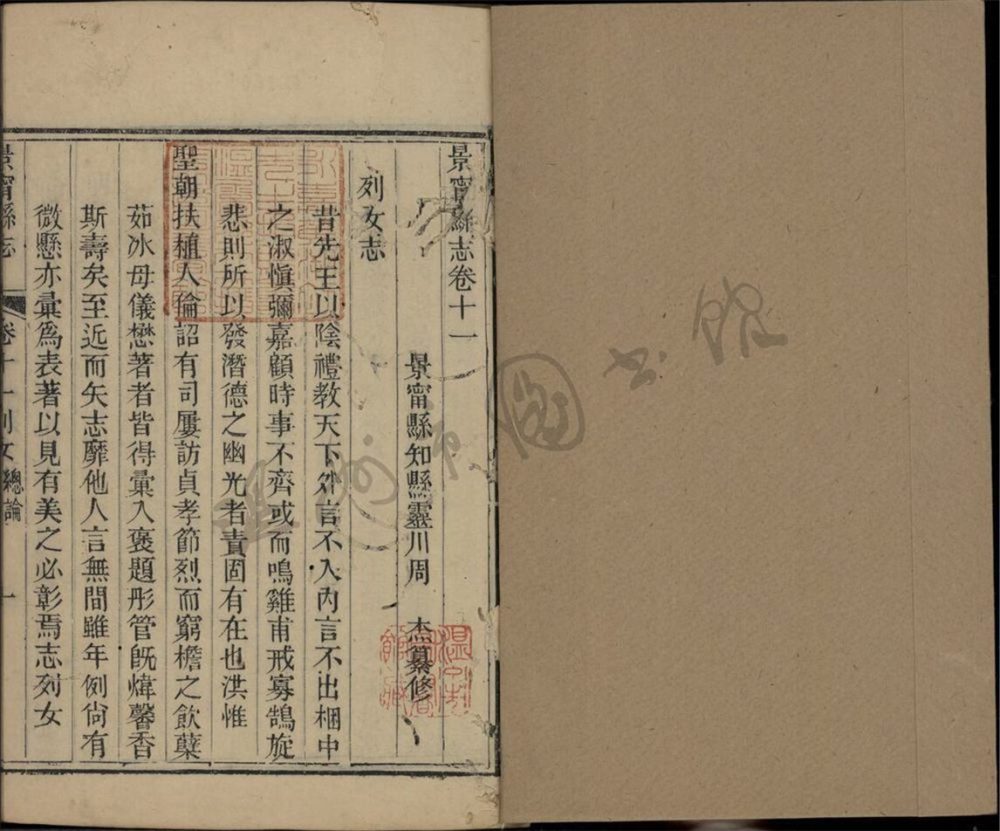 景甯縣志卷十一
景甯縣知縣靈川周 杰纂修
列女志
昔先王以陰禮教天下外言不入內言不出梱中
之淑愼彌嘉顧時事不齊或而鳴雞甫戒寡鵠旋
悲則所以發潛德之幽光者責固有在也洪惟
聖朝扶植人倫詔有司屢訪貞孝節烈而窮檐之飲蘗
茹冰母儀懋著者皆得彙入褒題彤管旣煒馨香
斯壽矣至近而矢志靡他人言無間雖年例尙有
微懸亦彙爲表著以見有美之必彰焉志列女
景甯縣志 卷十一列女 總論 一
溫州 圖書館